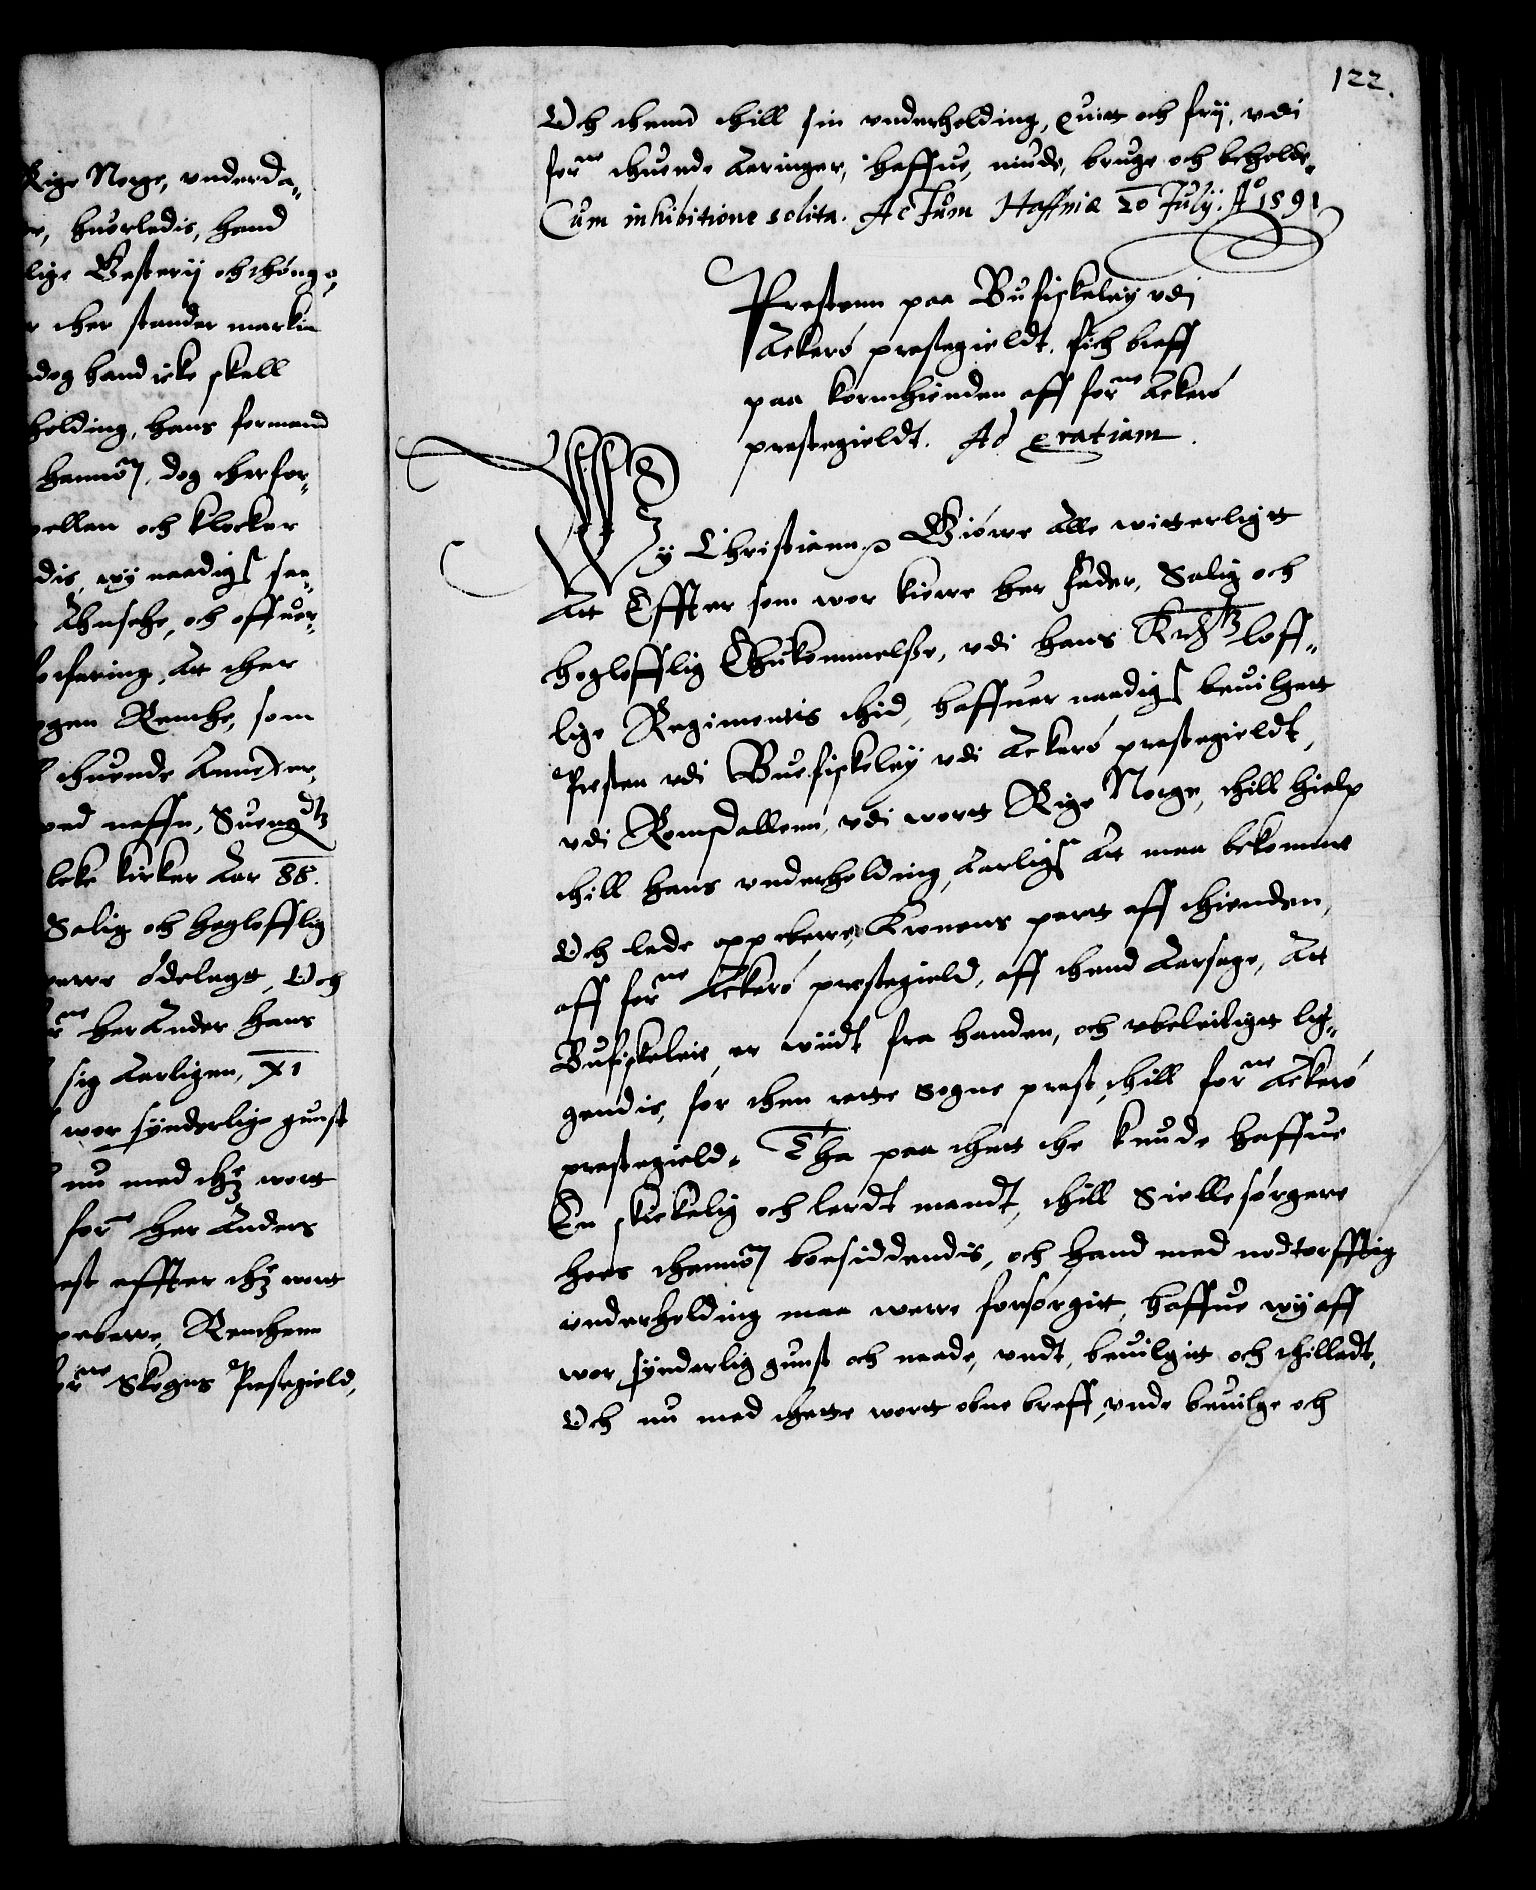 Rige Norge, underda„
huorledis, hand
lige Gesterij och thönge,
ther stander marckin
dog hand icke skall
holding, hans formand
hannom, dog ther for„
pellan och Klocker
dis, wy naadigst saa„
Ahnsehe, och offuer„
faring, Att ther
gen Renthe, som
thuende Annexer,
ved naffn, Sueng
leke kircker Aar 88.
Salig och hoglofflig
werre ödelagt, Och
for:ne Her Ander Hans
sig Aarligen, XI
wor synderlige gunst
nu med thz wort
for:ne Her Anders
est effter thz wort
pebere, Renthenn
for:ne Skogns Prestegield,
122.
Och thend thill sin underholding, quit och frij, udi
for:ne thuende Aaringer, haffue, niude, bruge och beholde„
Cum inhibitione solita. Actum Haffniæ 20 Julij: A:o 1591
Prestenn paa Bufiskeleij udj
Ackerö prestegieldt, fich breff
paa kornthienden aff for:ne Ackerö
prestegieldt. Ad gratiam.
Wy Christiann Giöre Alle witterligtt
Att Effter som wor kiere Her fader, Salig och
hogloffliig Ihukommelsse, udi hans Kri: Mtz loff„
lige Regimentis thid, haffuer naadigst beuilgett
Presten udi Buefiskeleij udi Ackerö prestegieldt,
udi Romsdallenn, udi wortt Rige Norge, thill hielp
thill hans underholding, Aarligst Att maa bekomme
Och lade oppebere, Kronens part aff thienden,
aff for:ne Ackerö prestegield, aff thend Aarsage, Att
Bufiskeleie, er wiidt fra handen, och ubeleiligt lig„
gendis, for then rette Sogne prest, thill for:ne Ackerö
prestegield. Tha paa thett the kunde haffue
En skickelig och lerdt mandt, thill Siellesörgere
hoes thennom boesiddendis, och hand med nodtorfftig
underholding maa werre forsörgitt, haffue wij aff
wor synderlig gunst och naade, undt, beuilgit och thilladt,
Och nu med thette wortt obne breff, unde beuilge och